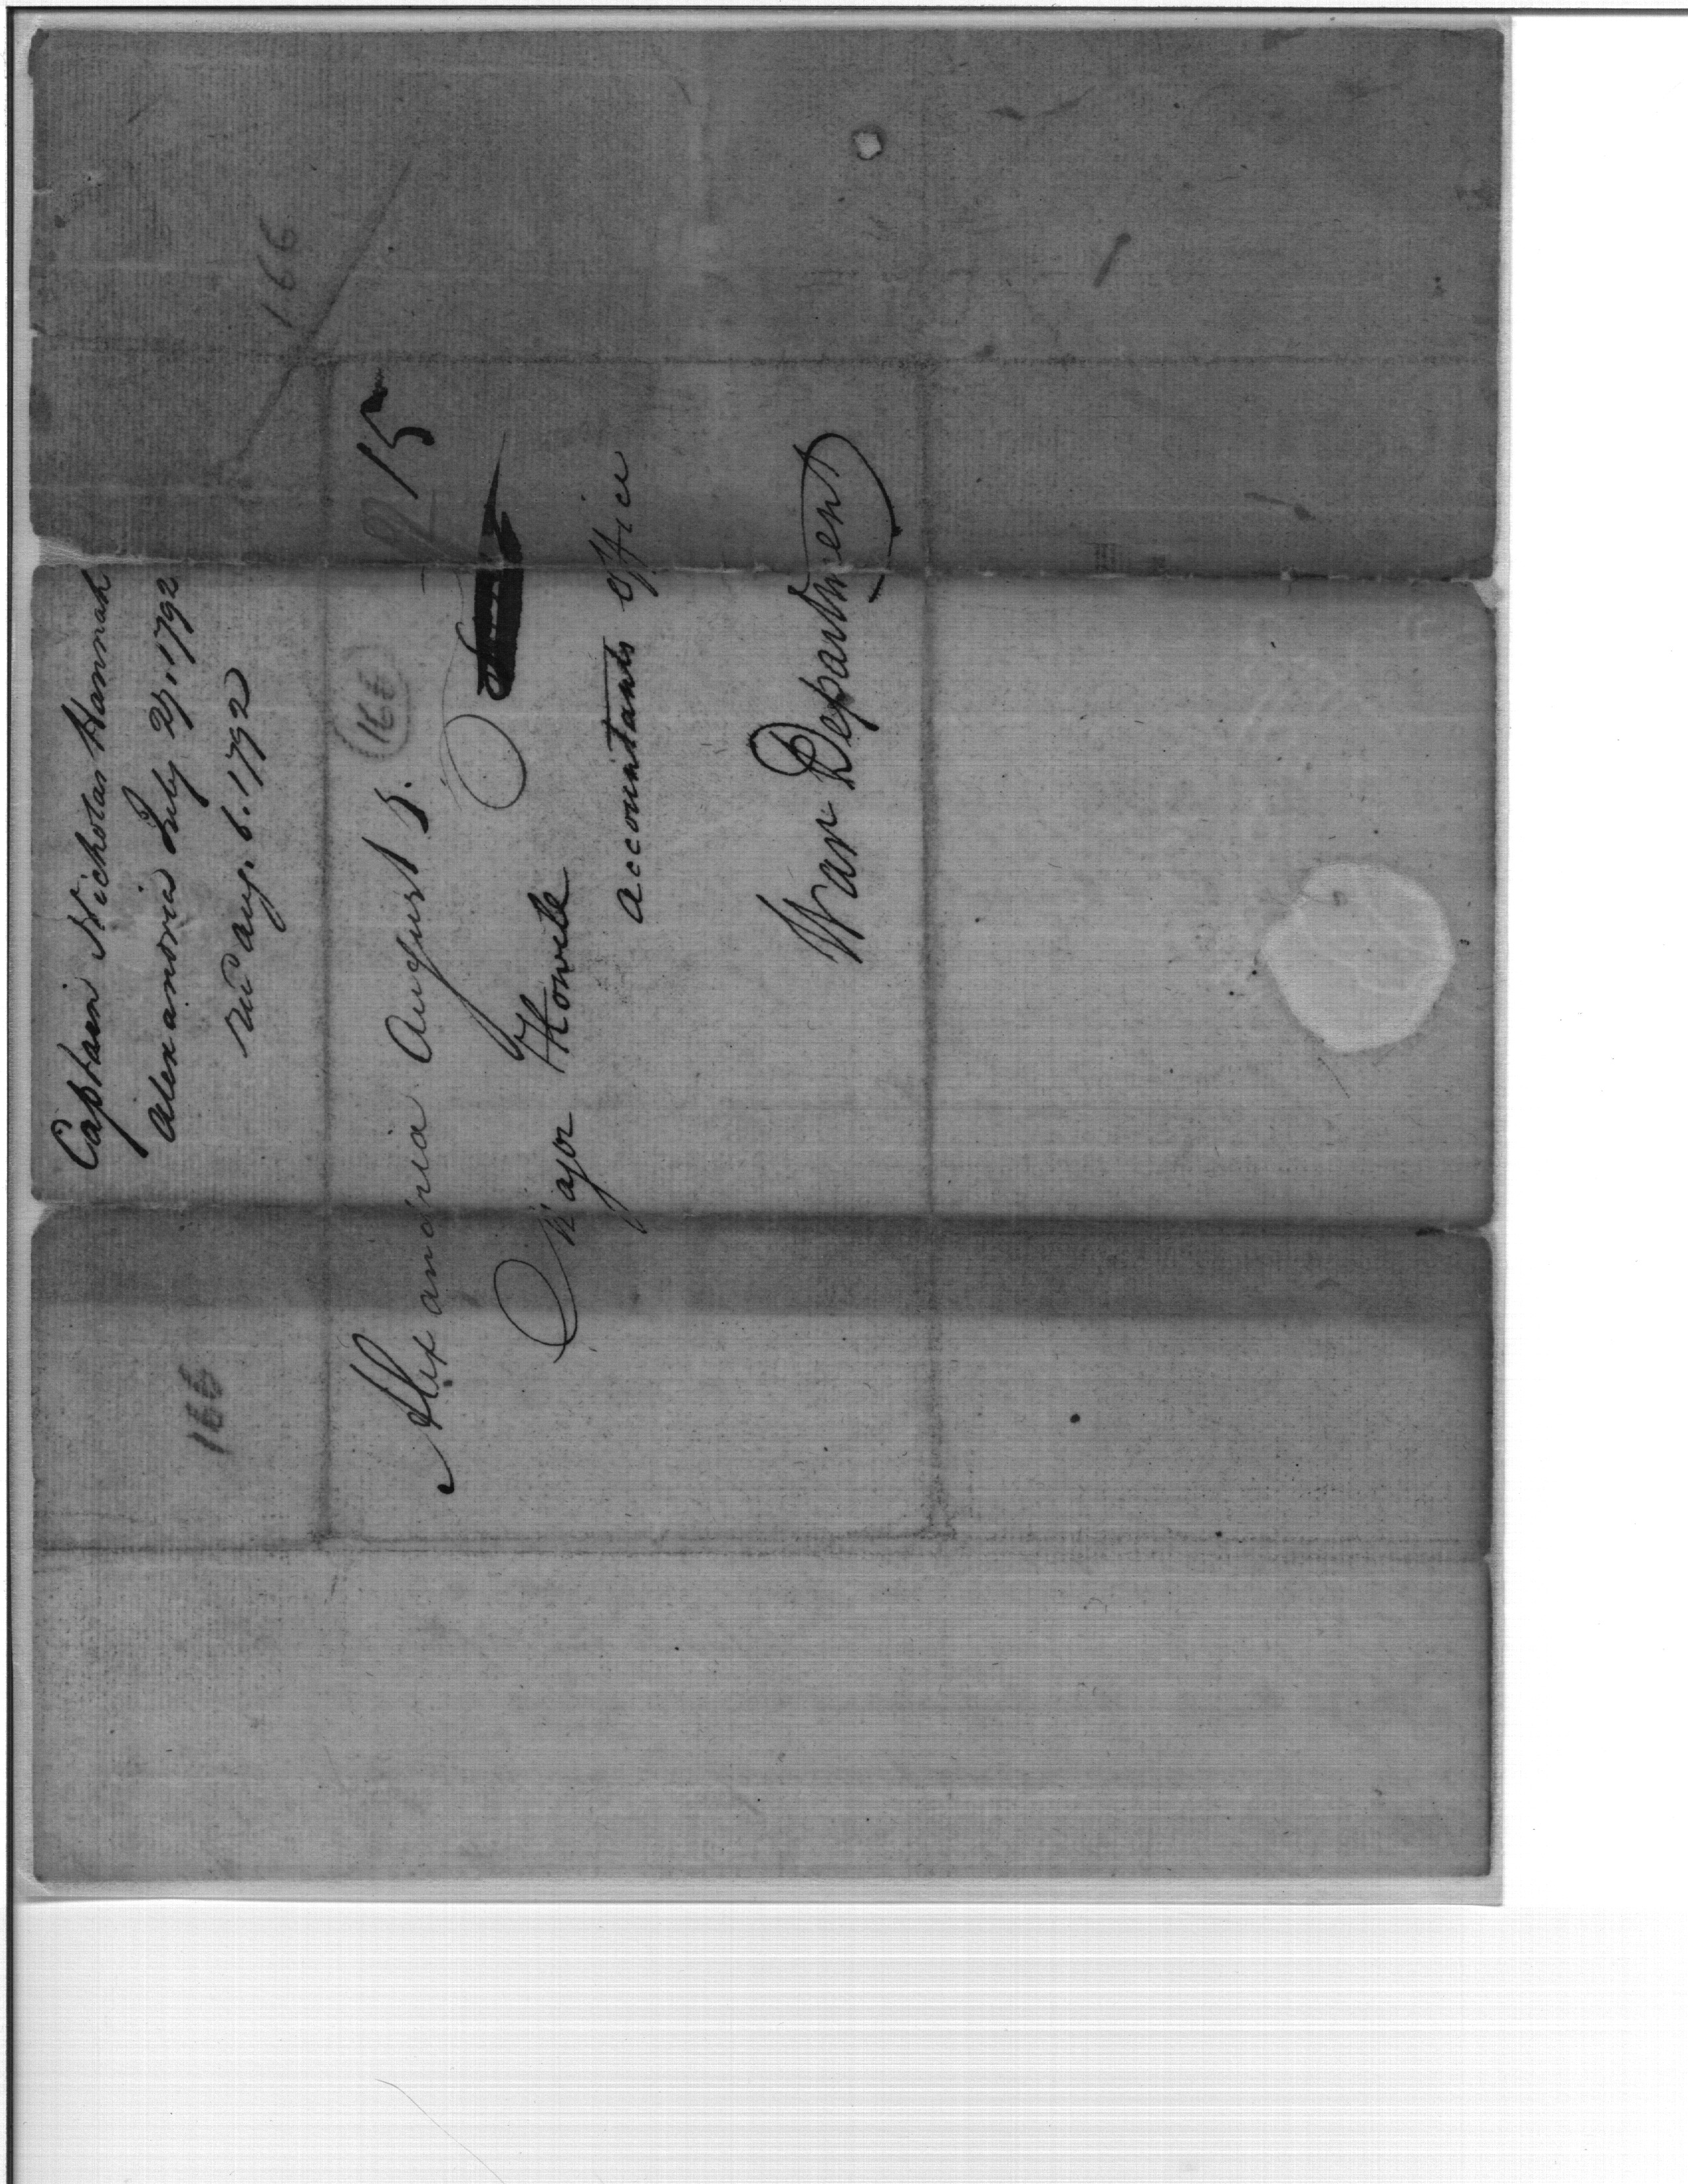 Captain Nicholas Hannah
Alexandria July 27. 1792
Rec Aug. 6. 1792
166
166
166
Alexandria August 3. 15
Major Howell
Accountants Office
War Department